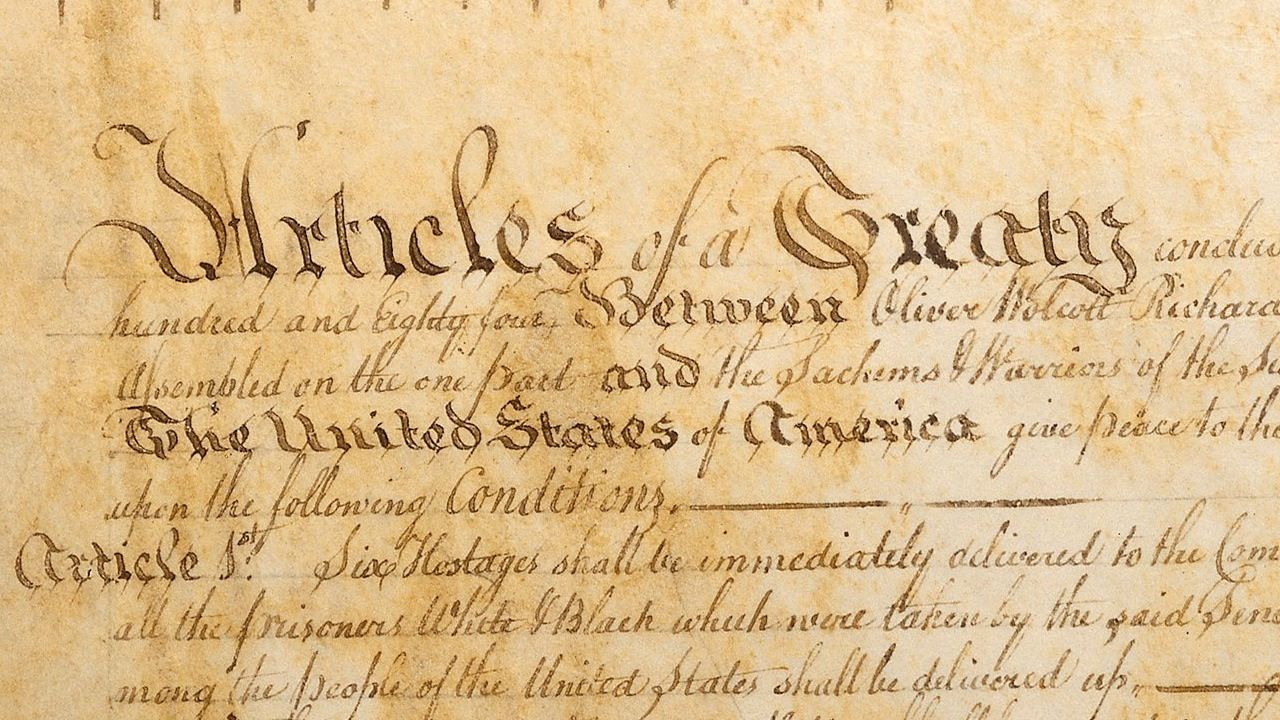 Articles of a Treaty conclu
hundred and Eighty four, Between Oliver Wolcott Richard
Assembled on the one part and the Sachems & Warriors of the Si
The United States of America give peace to the
upon the following Conditions,
Article 1st. Six Hostages shall be immediately delivered to the Com
all the prisoners White & Black which were taken by the said Sene
mong the people of the United States shall be delivered up,